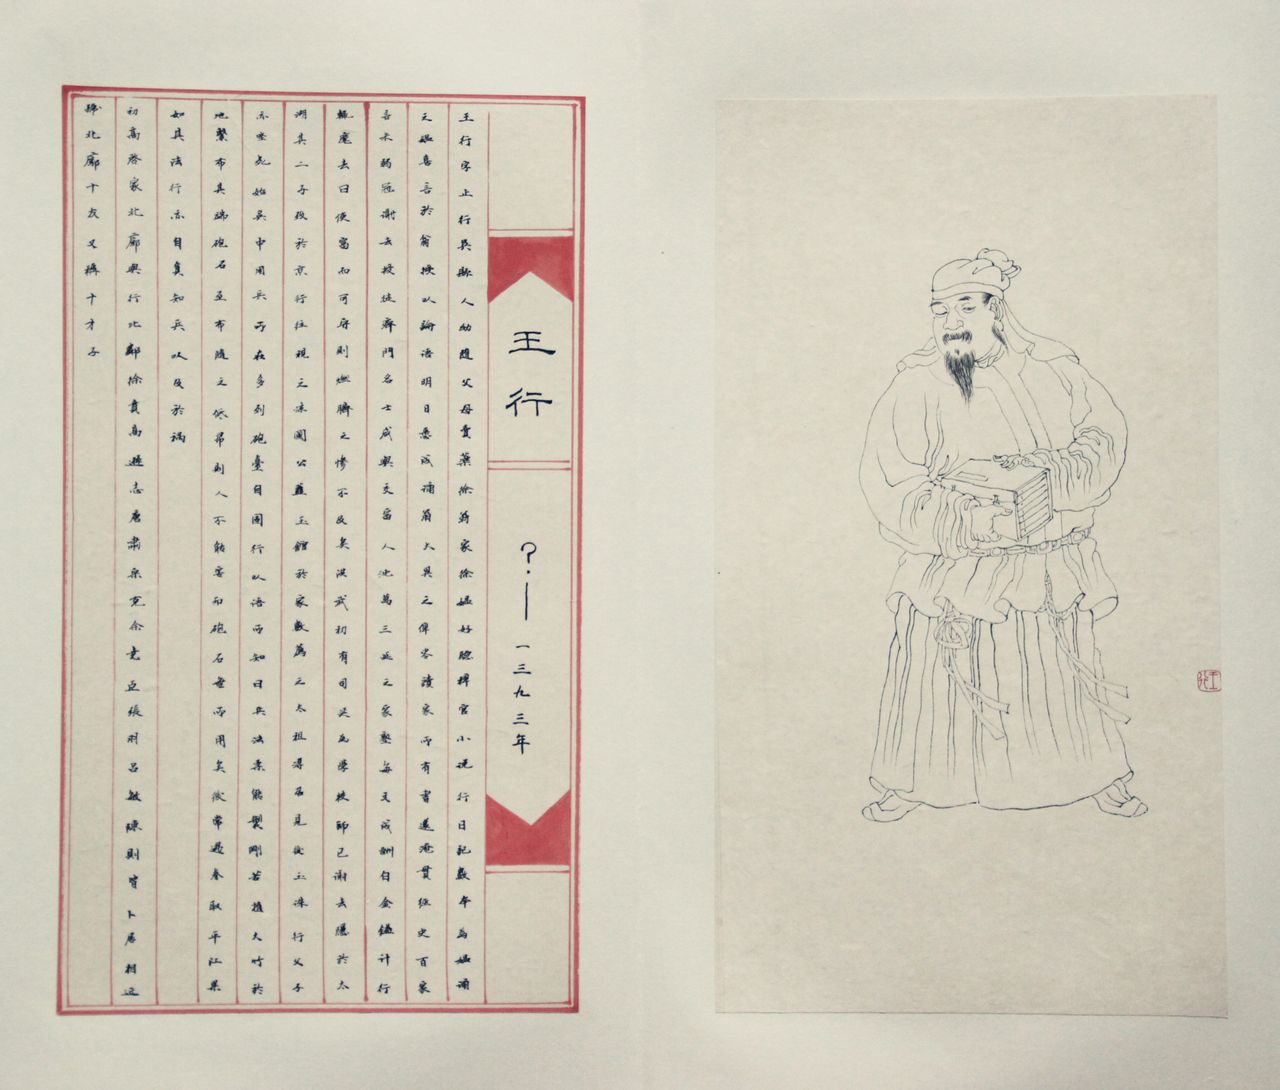 王行
?—一三九三年
王行字止行吳縣人幼隨父母賣藥徐翁家徐媼好聽稗官小说行日記數本為媼誦
之媼喜言於翁授以論語明日悉成誦翁大異之俾盡讀家所有書遂淹貫經史百家
言未弱冠謝去授徒齊門名士咸與交富人沈萬三延之家塾每文成酬白金鎰計行
輒麾去曰使富而可守則燃臍之慘不及矣洪武初有司延為學校師已謝去隱於太
湖其二子役於京行往視之涼國公藍玉館於家數薦之太祖得召見後玉誅行父子
亦坐死始吳中用兵所在多列砲臺自固行以語所知曰兵法柔能製剛若植大竹於
地繫布其端砲石至布隨之低昂則人不能害而砲石無所用矣後常遇春取平江果
如其法行亦自負知兵以及於禍
初高啓家北廓與行比鄰徐賁高遜志唐肅宋克余堯臣張羽呂敏陳則皆卜居相近
號北廓十友又稱十才子
王行